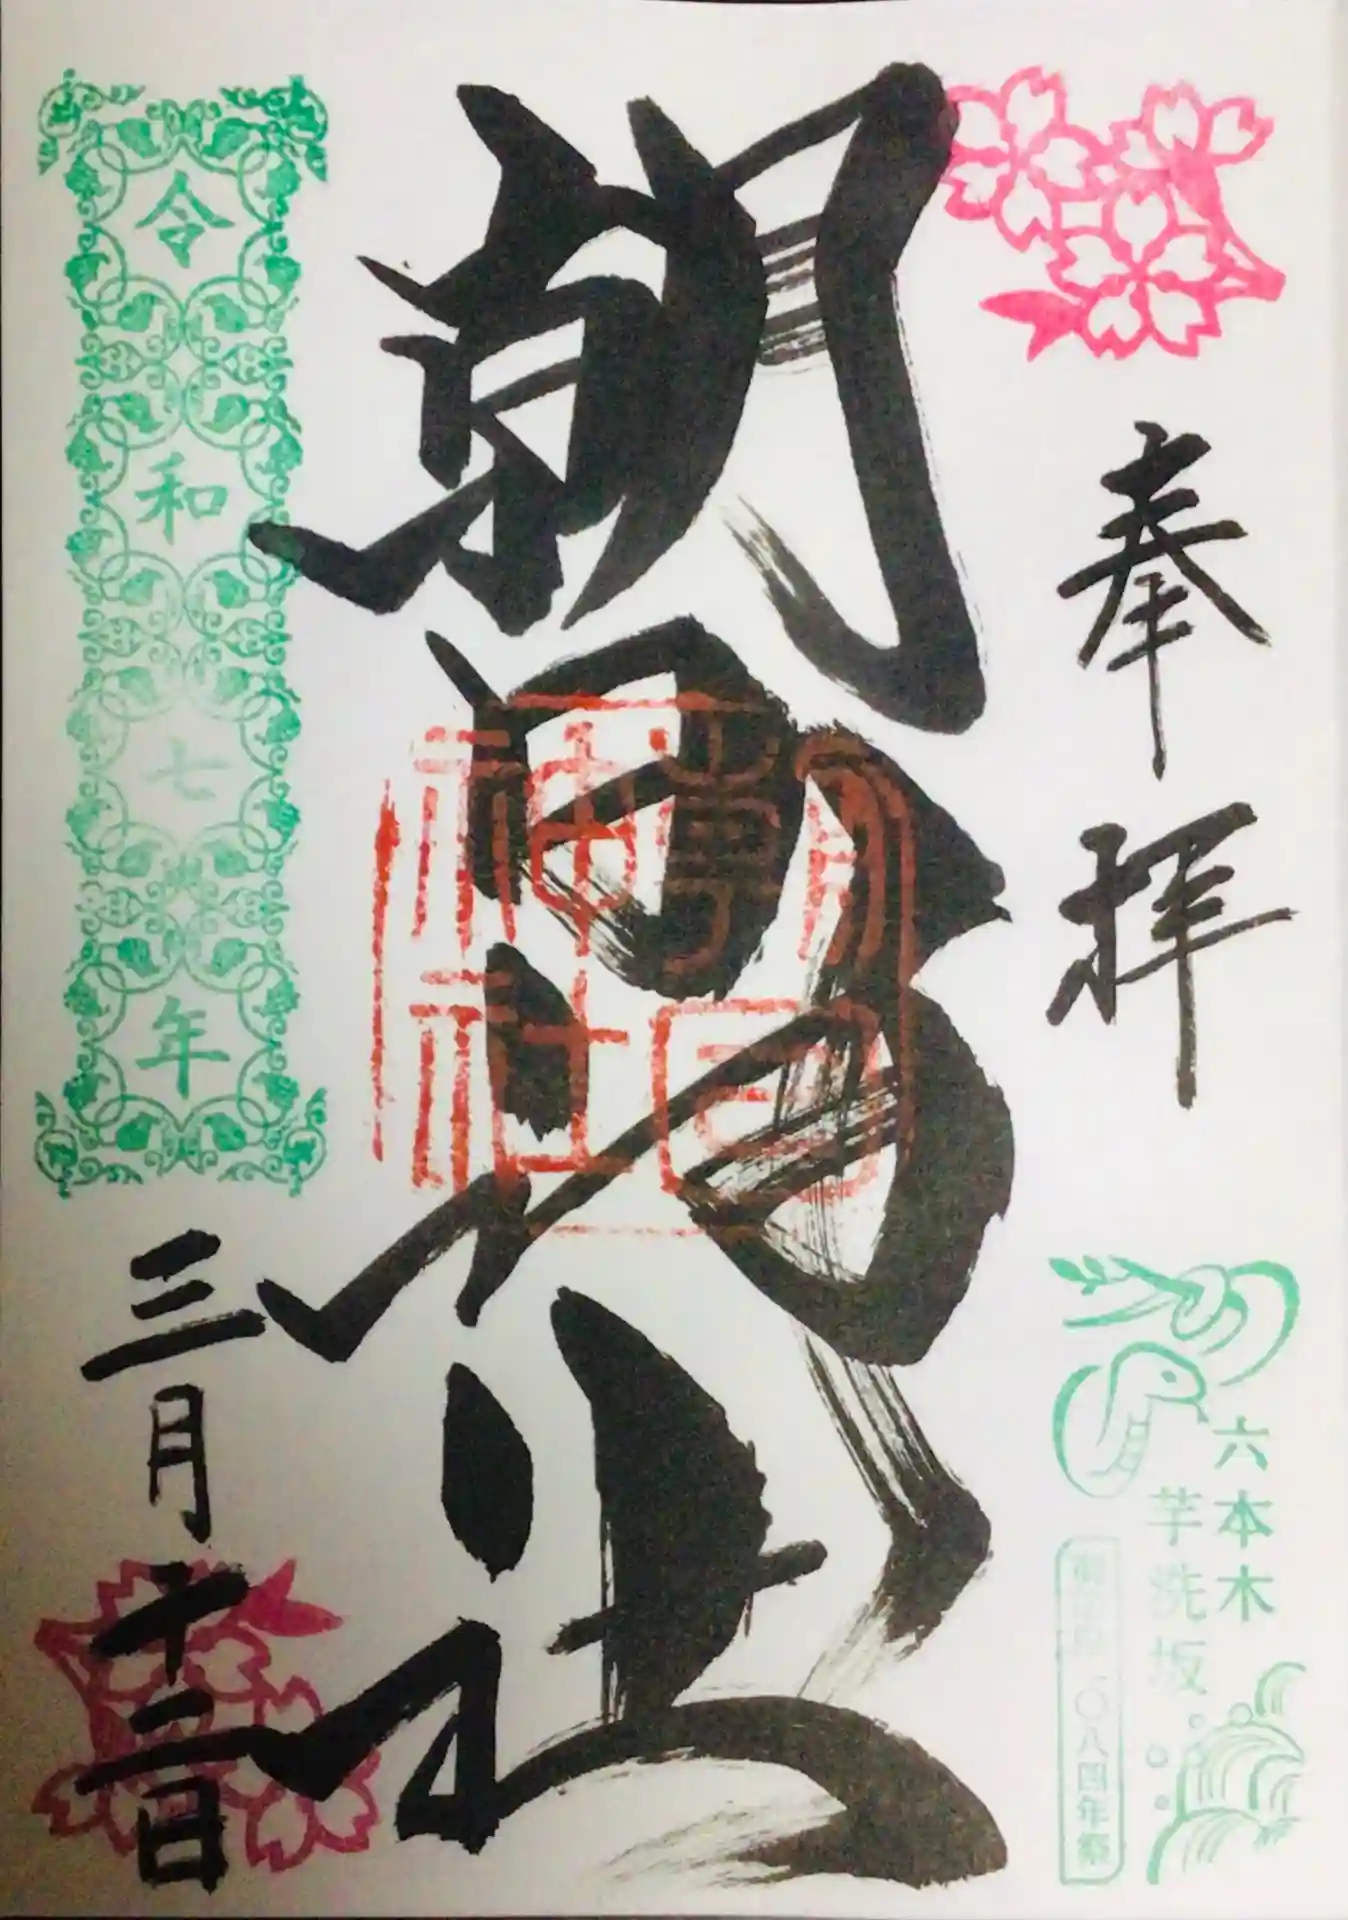 奉拝
六本木
芋洗坂
〇八四年祭
朝日神社
朝日神社
令和七年
三月十二日